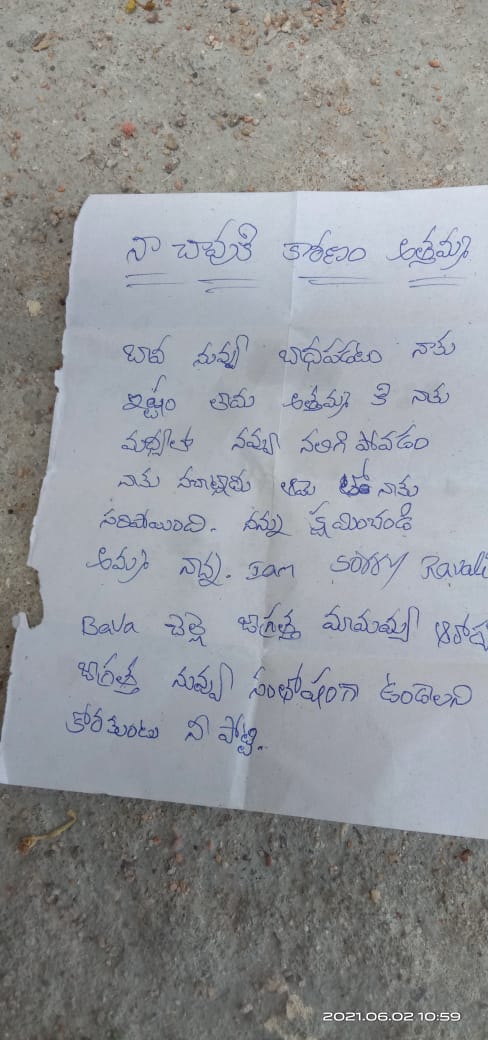 నా చావుకి కారణం అత్తమ్మ
బావ నువ్వు బాధపడటం నాకు
ఇష్టం లేదు అత్తమ్మ కి నాకు
మధ్యలో నువ్వు నలిగి పోవడం
నాకు
సరిపోయింది. నన్ను క్షమించండి
అమ్మ నాన్న. Iam sorry Ravali
Bava చెల్లె జాగ్రత్త మామయ్య
జాగ్రత్త నువ్వు సంతోషంగా ఉండాలని
కోరుకుంటు నీ పొట్టి.
2021.06.02 10:59